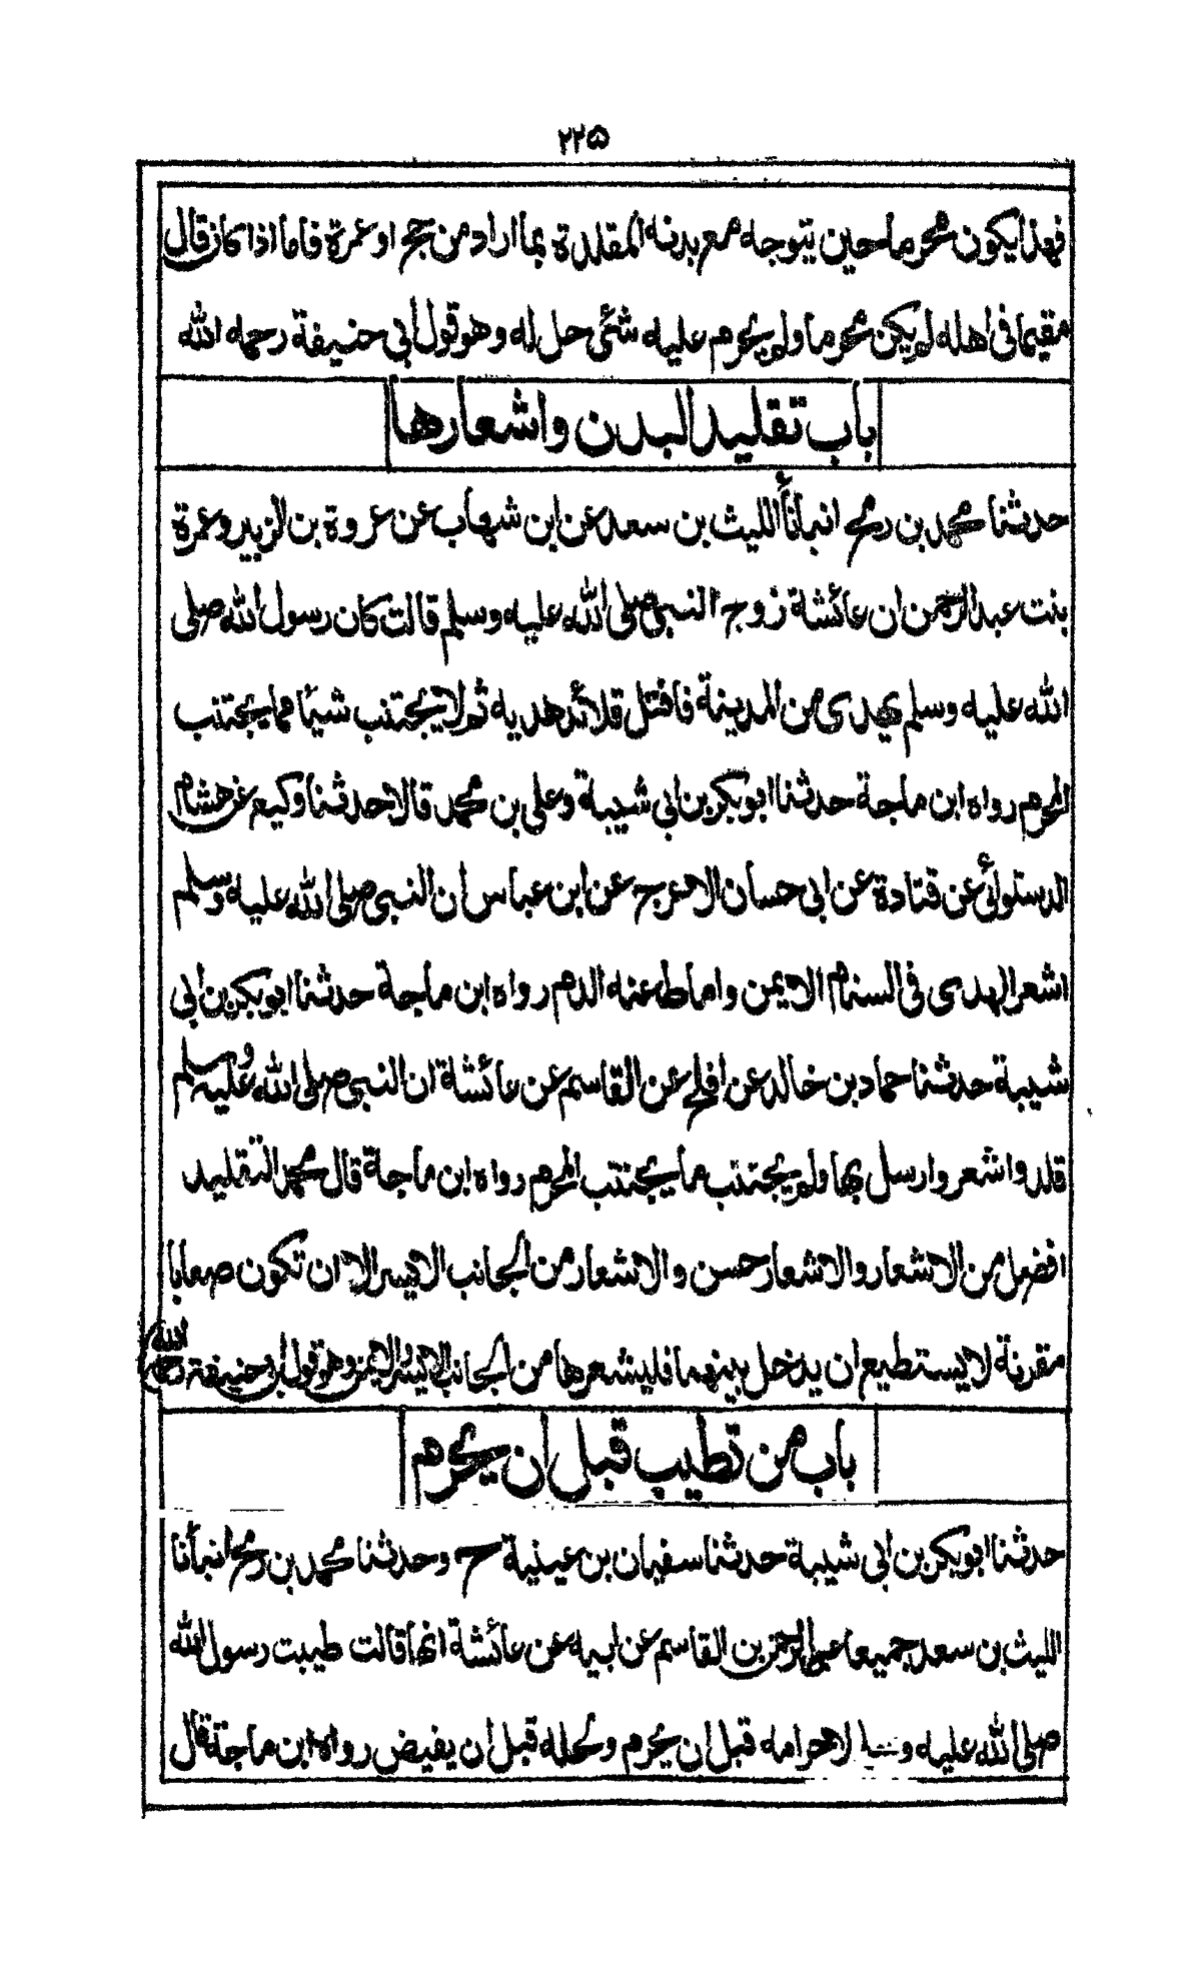 ٢٢٥
فهذا يكون محرما حين يتوجه مع بدنه المقلدة بما اراد من حج او عمرة فاما اذا كان قال
مقيما فى اهله لم يكن محرما ولم يحرم عليه شئى حل له وهو قول ابى حنيفة رحمه الله
باب تقليد البدن واشعارها
حدثنا محمد بن رمح انبأنا الليث بن سعد عن ابن شهاب عن عروة بن الزبير وعمرة
بنت عبد الرحمن ان عائشة زوج النبى صلى الله عليه وسلم قالت كان رسول الله صلى
الله عليه وسلم يهدى من المدينة فافتل قلائد هديه ثم لا يجتنب شيئا مما يجتنب
المحرم رواه ابن ماجة حدثنا ابو بكر بن ابى شيبة وعلى بن محمد قالا حدثنا وكيع عن هشام
الدستوائى عن قتادة عن ابى حسان الاعرج عن ابن عباس ان النبى صلى الله عليه وسلم
اشعر الهدى فى السنام الايمن واماط عنه الدم رواه ابن ماجة حدثنا ابو بكر بن ابى
شيبة حدثنا حماد بن خالد عن افلح عن القاسم عن عائشة ان النبى صلى الله عليه وسلم
قلد واشعر وارسل بها ولم يجتنب ما يجتنب المحرم رواه ابن ماجة قال محمد التقليد
افضل من الاشعار والاشعار حسن والاشعار من الجانب الايسر الا ان تكون صعابا
مقرنة لا يستطيع ان يدخل بينهما فليشعرها من الجانب الايسر والايمن وهو قول ابى حنيفة رحمه الله
باب من تطيب قبل ان يحرم
حدثنا ابو بكر بن ابى شيبة حدثنا سفيان بن عيينة ح وحدثنا محمد بن رمح انبأنا
الليث بن سعد جميعا عن عبد الرحمن بن القاسم عن ابيه عن عائشة انها قالت طيبت رسول الله
صلى الله عليه وسلم لاحرامه قبل ان يحرم ولحله قبل ان يفيض رواه ابن ماجة قال